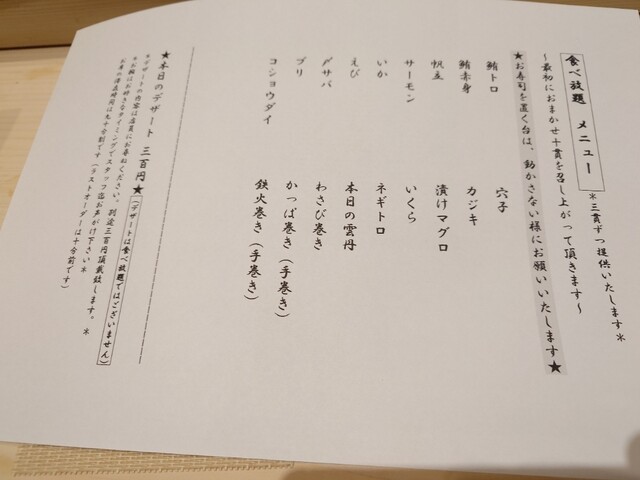 食べ放題　メニュー
＊三貫ずつ提供いたします＊
～最初におまかせ十貫を召し上がって頂きます～
★お寿司を置く台は、動かさない様にお願いいたします★
鮪トロ
鮪赤身
帆立
サーモン
いか
えび
〆サバ
ブリ
コショウダイ
穴子
カジキ
漬けマグロ
いくら
ネギトロ
本日の雲丹
わさび巻き
かっぱ巻き（手巻き）
鉄火巻き（手巻き）
★本日のデザート　三百円★（デザートは食べ放題ではございません）
＊デザートの内容は店員にお尋ねください。別途三百円頂戴致します。＊
＊お椀はお好きなタイミングでスタッフ迄お声がけ下さい＊
お席の滞在時間は九十分制です（ラストオーダーは十分前です）